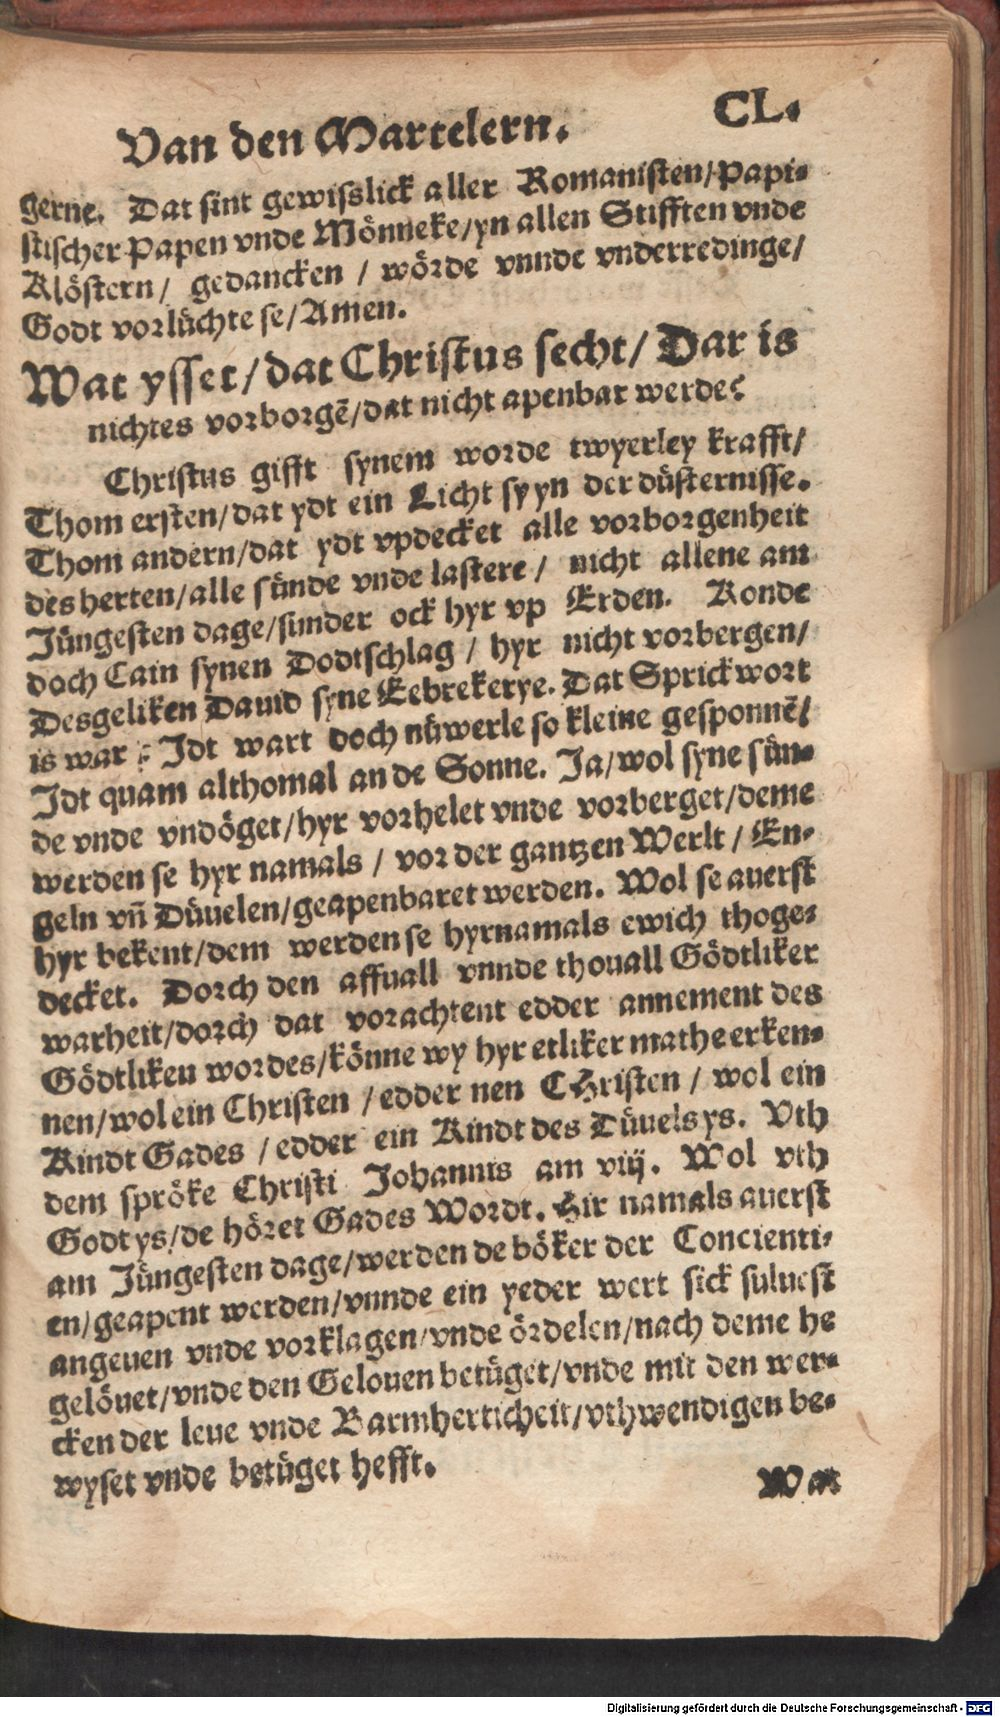 Van den Martelern. CL.
gerne. Dat sint gewisslick aller Romanisten/Papi-
stischer Papen vnde Mönneke/yn allen Stifften vnde
Klöstern/ gedancken / wörde vnnde vnderredinge/
Godt vorlüchte se/Amen.
Wat ysset/dat Christus secht/ Dar is
nichtes vorborgē/dat nicht apenbar werde?
Christus gifft synem worde twyerley krafft/
Thom ersten/dat ydt ein Licht sy yn der düsternisse.
Thom andern/dat ydt vpdecket alle vorborgenheit
des herten/alle sünde vnde lastere/ nicht allene am
Jüngesten dage/sunder ock hyr vp Erden. Konde
doch Cain synen Dodtschlag / hyr nicht vorbergen/
Desgeliken Dauid syne Eebrekerye. Dat Sprickwort
is war : Idt wart doch nüwerle so kleine gesponnē/
Idt quam althomal an de Sonne. Ja/wol syne sün-
de vnde vndöget/hyr vorhelet vnde vorberget/deme
werden se hyr namals / vor der gantzen Werlt / En-
geln vn̄ Düuelen/geapenbaret werden. Wol se auerst
hyr bekent/dem werden se hyrnamals ewich thoge-
decket. Dorch den affuall vnnde thouall Gödtliker
warheit/dorch dat vorachtent edder annement des
Gödtliken wordes/könne wy hyr etliker mathe erken-
nen/wol ein Christen /edder nen CHristen / wol ein
Kindt Gades / edder ein Kindt des Düuels ys. Vth
dem spröke Christi Johannis am viij. Wol vth
Godt ys/de höret Gades Wordt. Hir namals auerst
am Jüngesten dage/werden de böker der Concienti-
en/geapent werden/vnnde ein yeder wert sick suluest
angeuen vnde vorklagen/vnde ördelen/nach deme he
gelöuet/vnde den Gelouen betüget/vnde mit den wer-
cken der leue vnde Barmherticheit/vthwendigen be-
wyset vnde betüget hefft.
Wat
Digitalisierung gefördert durch die Deutsche Forschungsgemeinschaft - DFG